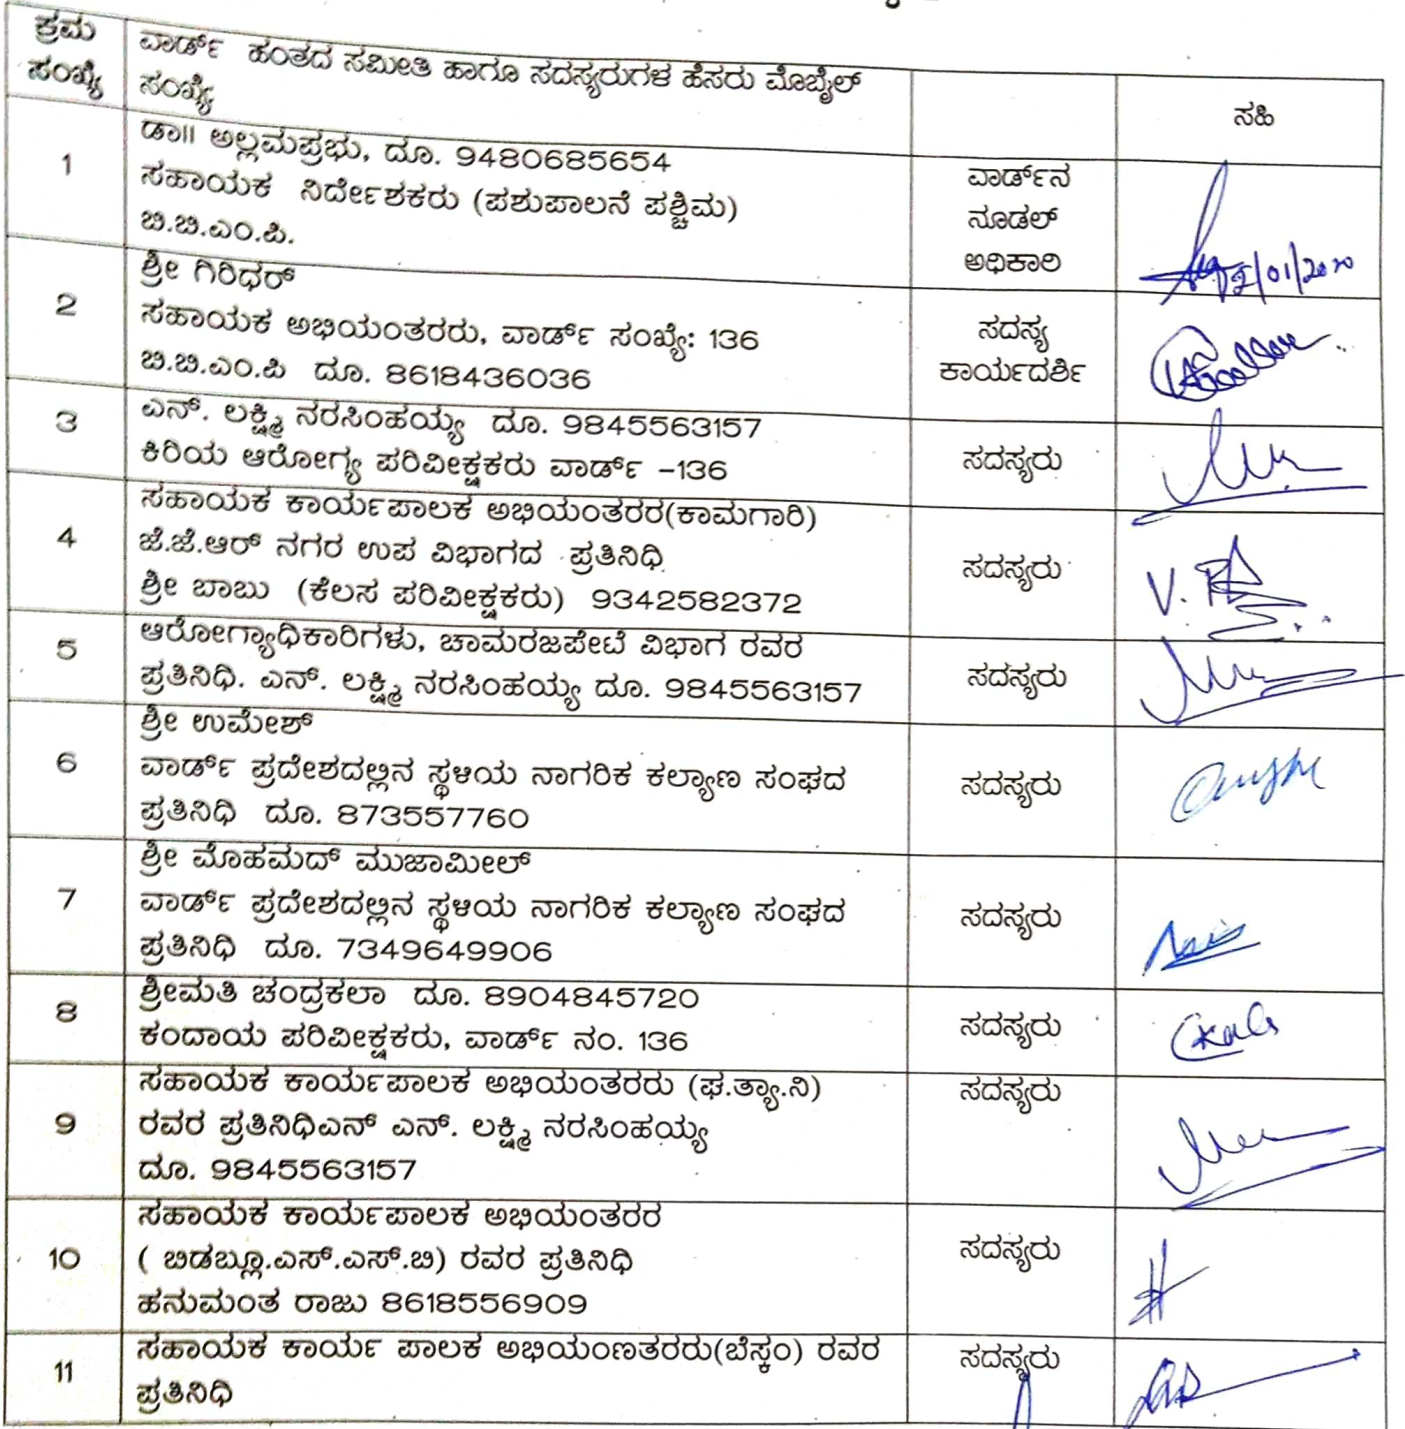 ಕ್ರಮ ಸಂಖ್ಯೆ
ವಾರ್ಡ್ ಹಂತದ ಸಮೀತಿ ಹಾಗೂ ಸದಸ್ಯರುಗಳ ಹೆಸರು ಮೊಬೈಲ್
ಸಂಖ್ಯೆ
ಸಹಿ
1
ಡಾ|| ಅಲ್ಲಮಪ್ರಭು, ದೂ. 9480685654
ಸಹಾಯಕ ನಿರ್ದೇಶಕರು (ಪಶುಪಾಲನೆ ಪಶ್ಚಿಮ)
ಬಿ.ಬಿ.ಎಂ.ಪಿ.
ವಾರ್ಡ್‌ನ
ನೂಡಲ್
ಅಧಿಕಾರಿ
2
ಶ್ರೀ ಗಿರಿಧರ್
ಸಹಾಯಕ ಅಭಿಯಂತರರು, ವಾರ್ಡ್ ಸಂಖ್ಯೆ: 136
ಬಿ.ಬಿ.ಎಂ.ಪಿ ದೂ. 8618436036
ಸದಸ್ಯ
ಕಾರ್ಯದರ್ಶಿ
3
ಎನ್. ಲಕ್ಷ್ಮಿ ನರಸಿಂಹಯ್ಯ ದೂ. 9845563157
ಕಿರಿಯ ಆರೋಗ್ಯ ಪರಿವೀಕ್ಷಕರು ವಾರ್ಡ್ -136
ಸದಸ್ಯರು
4
ಸಹಾಯಕ ಕಾರ್ಯಪಾಲಕ ಅಭಿಯಂತರರ(ಕಾಮಗಾರಿ)
ಜೆ.ಜೆ.ಆರ್ ನಗರ ಉಪ ವಿಭಾಗದ ಪ್ರತಿನಿಧಿ
ಶ್ರೀ ಬಾಬು (ಕೆಲಸ ಪರಿವೀಕ್ಷಕರು) 9342582372
ಸದಸ್ಯರು
5
ಆರೋಗ್ಯಾಧಿಕಾರಿಗಳು, ಚಾಮರಜಪೇಟೆ ವಿಭಾಗ ರವರ
ಪ್ರತಿನಿಧಿ. ಎನ್. ಲಕ್ಷ್ಮಿ ನರಸಿಂಹಯ್ಯ ದೂ. 9845563157
ಸದಸ್ಯರು
6
ಶ್ರೀ ಉಮೇಶ್
ವಾರ್ಡ್ ಪ್ರದೇಶದಲ್ಲಿನ ಸ್ಥಳಿಯ ನಾಗರಿಕ ಕಲ್ಯಾಣ ಸಂಘದ
ಪ್ರತಿನಿಧಿ ದೂ. 873557760
ಸದಸ್ಯರು
7
ಶ್ರೀ ಮೊಹಮದ್ ಮುಜಾಮೀಲ್
ವಾರ್ಡ್ ಪ್ರದೇಶದಲ್ಲಿನ ಸ್ಥಳಿಯ ನಾಗರಿಕ ಕಲ್ಯಾಣ ಸಂಘದ
ಪ್ರತಿನಿಧಿ ದೂ. 7349649906
ಸದಸ್ಯರು
8
ಶ್ರೀಮತಿ ಚಂದ್ರಕಲಾ ದೂ. 8904845720
ಕಂದಾಯ ಪರಿವೀಕ್ಷಕರು, ವಾರ್ಡ್ ನಂ. 136
ಸದಸ್ಯರು
9
ಸಹಾಯಕ ಕಾರ್ಯಪಾಲಕ ಅಭಿಯಂತರರು (ಘ.ತ್ಯಾ.ನಿ)
ರವರ ಪ್ರತಿನಿಧಿಎನ್ ಎನ್. ಲಕ್ಷ್ಮಿ ನರಸಿಂಹಯ್ಯ
ದೂ. 9845563157
ಸದಸ್ಯರು
10
ಸಹಾಯಕ ಕಾರ್ಯಪಾಲಕ ಅಭಿಯಂತರರ
( ಬಿಡಬ್ಲೂ.ಎಸ್.ಎಸ್.ಬಿ) ರವರ ಪ್ರತಿನಿಧಿ
ಹನುಮಂತ ರಾಜು 8618556909
ಸದಸ್ಯರು
11
ಸಹಾಯಕ ಕಾರ್ಯ ಪಾಲಕ ಅಭಿಯಂಣತರರು(ಬೆಸ್ಕಂ) ರವರ
ಪ್ರತಿನಿಧಿ
ಸದಸ್ಯರು